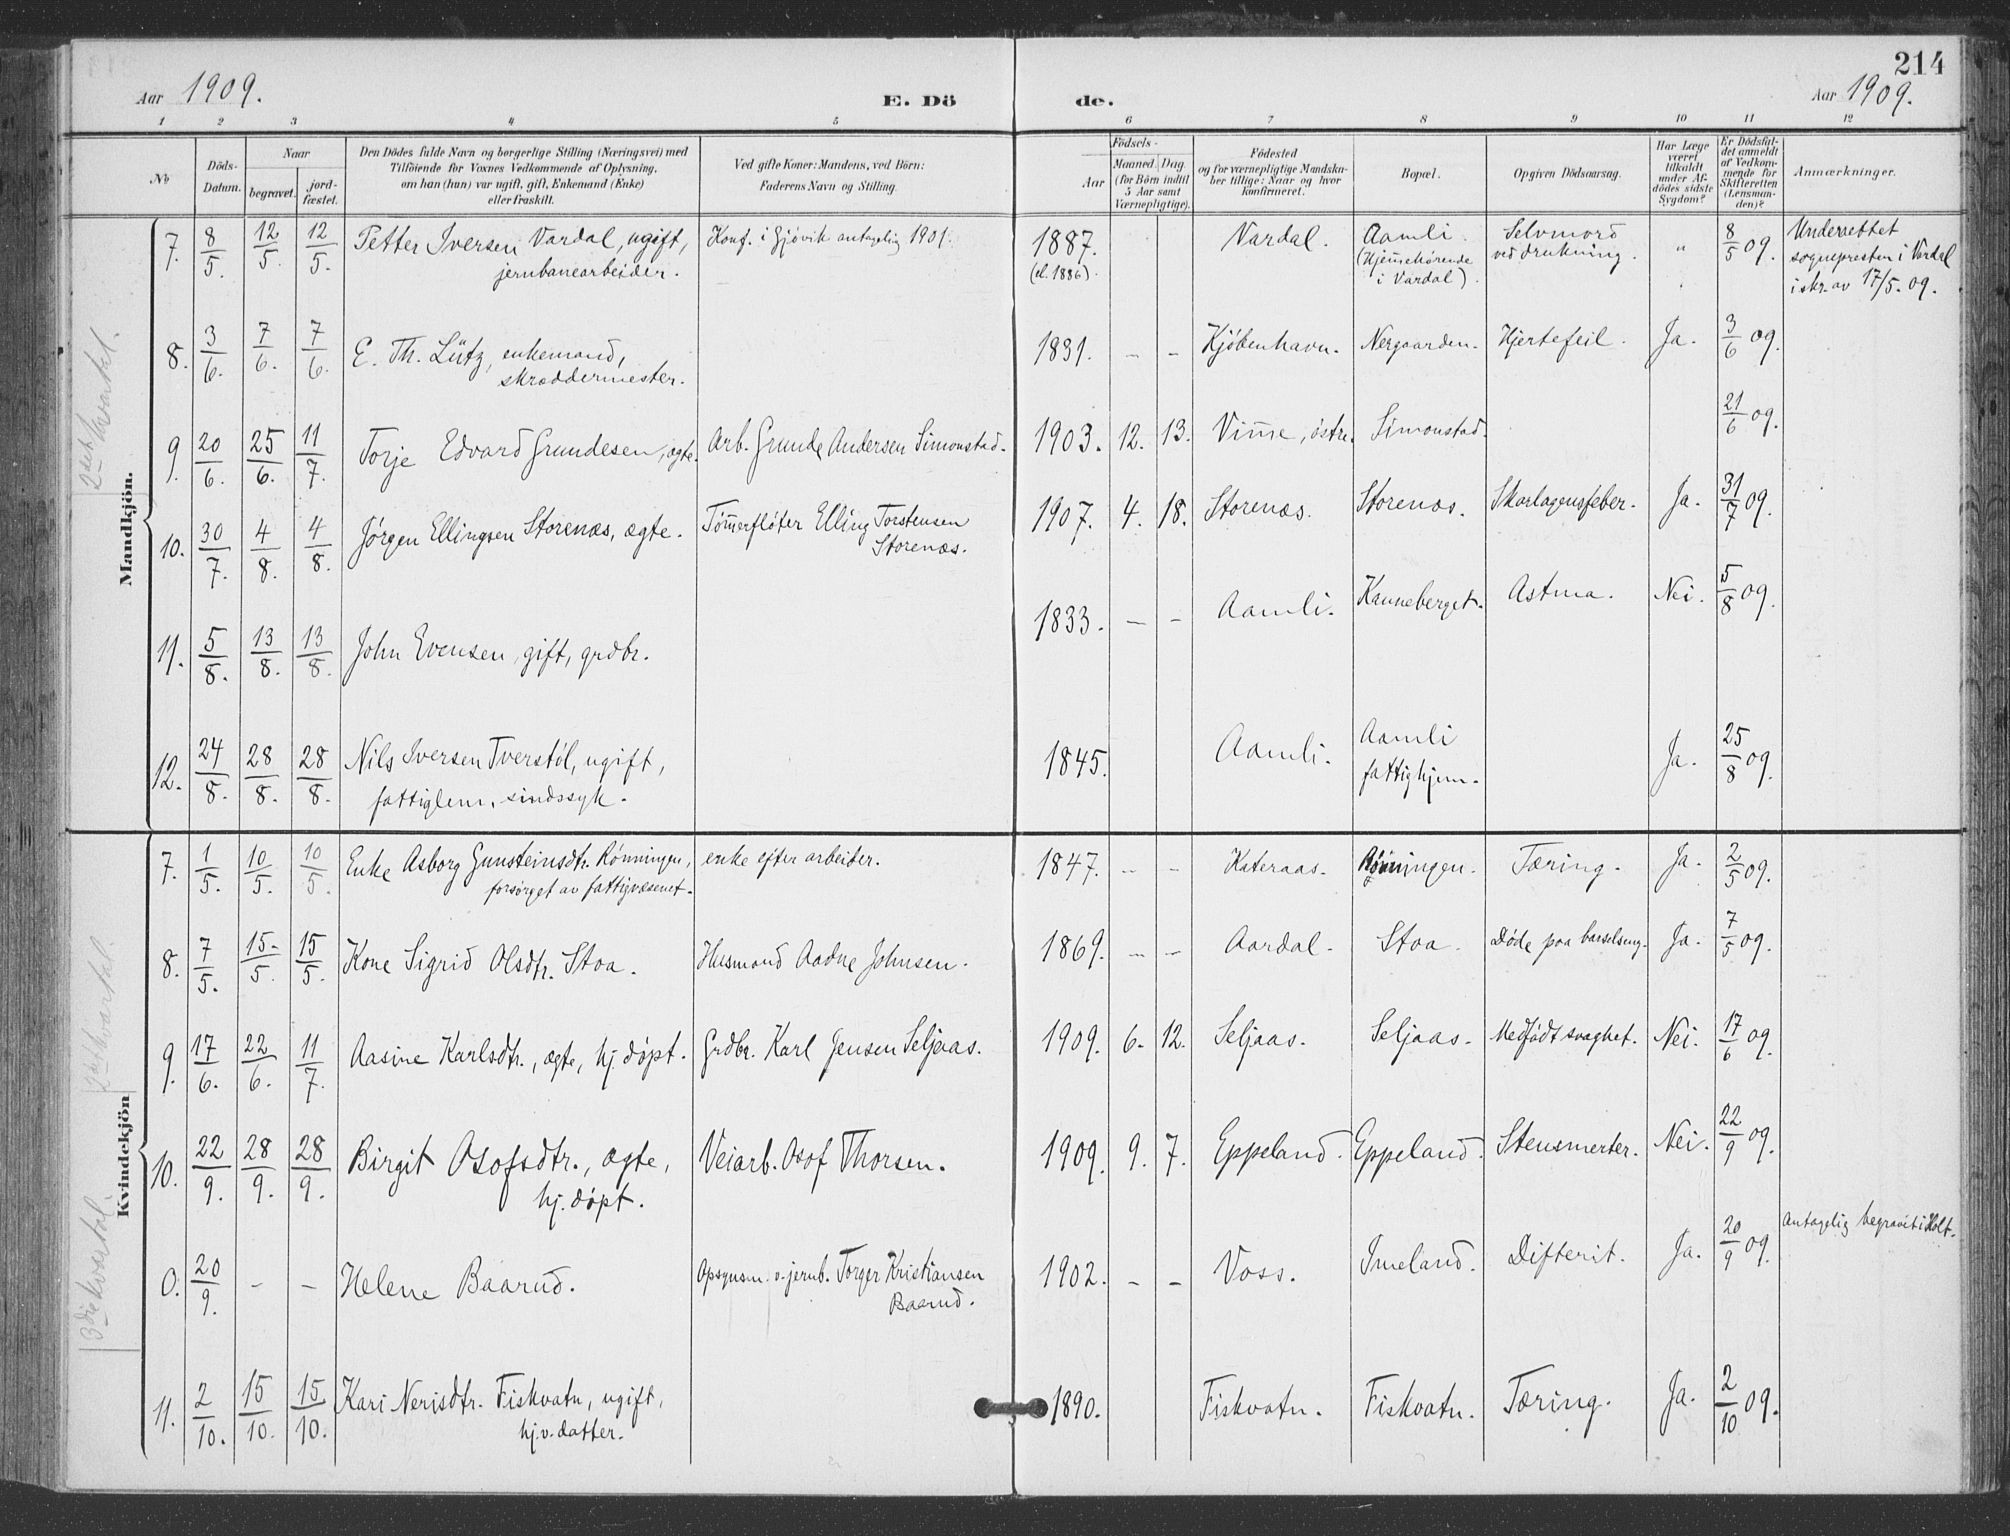 214
Aar 1909. E. Dö de. Aar 1909.
1 2 3 4 5 6 7 8 9 10 11 12
No
Döds-Datum.
Naar
begravet.
jord-fæstet.
Den Dödes fulde Navn og borgerlige Stilling (Næringsvei) med
Tilföiende for Voxnes Vedkommende af Oplysning,
om han (hun) var ugift, gift, Enkemand (Enke)
eller fraskilt.
Ved gifte Koner: Mandens, ved Börn:
Faderens Navn og Stilling.
Födsels-
Aar
Maaned. Dag.
(for Börn indtil
5 Aar samt
Værnepligtige).
Födested
og for værnepligtige Mandska-
ber tillige: Naar og hvor
konfirmeret.
Bopæl.
Opgiven Dödsaarsag.
Har Læge
været
tilkaldt
under Af-
dödes sidste
Sygdom?
Er Dödsfal-
det anmeldt
af Vedkom-
mende for
Skifteretten
(Lensman-
den)?
Anmærkninger.
Mandkjön.
2det kvartal.
7. 8/5. 12/5. 12/5. Petter Iversen Vardal, ugift, Konf. i Gjøvik antagelig 1901. 1887. Vardal. Aamli. Selvmord " 8/5 09. Underrettet
jernbanearbeider. (el. 1886). (Hjemmehørende ved drukning. sognepresten i Vardal
i Vardal). i skr. av 17/5. 09.
8. 3/6. 7/6. 7/6. E. Th. Lütz, enkemand, 1831. – – Kjøbenhavn. Nergaarden. Hjertefeil. Ja. 3/6 09.
skræddermester.
9. 20/6. 25/6. 11/7. Torje Edvard Grundesen, ægte. Arb. Grunde Andersen Simonstad. 1903. 12. 13. Vim̅e, østre. Simonstad. 21/6 09.
10. 30/7. 4/8. 4/8. Jørgen Ellingsen Storenæs, ægte. Tøm̅erfløter Elling Torstensen 1907. 4. 18. Storenæs. Storenæs. Skarlagensfeber. Ja. 31/7 09.
Storenæs.
11. 5/8. 13/8. 13/8. John Evensen, gift, grdbr. 1833. – – Aamli. Kanneberget. Astma. Nei. 5/8 09.
12. 24/8. 28/8. 28/8. Nils Iversen Tverstøl, ugift, 1845. Aamli. Aamli Ja. 25/8 09.
fattiglem, sindssyk. fattighjem.
Kvindekjön
2det kvartal.
7. 1/5. 10/5. 10/5. Enke Asborg Gunsteinsdtr. Rønningen, enke efter arbeider. 1847. – – Kateraas. Rønningen. Tæring. Ja. 2/5 09.
forsørget av fattigvæsenet.
8. 7/5. 15/5. 15/5. Kone Sigrid Olsdtr. Stoa. Husmand Aadne Johnsen. 1869. – – Aardal. Stoa. Døde paa barselseng. Ja. 7/5 09.
9. 17/6. 22/6. 11/7. Aasine Karlsdtr., ægte, hj. døpt. Grdbr. Karl Jensen Seljaas. 1909. 6. 12. Seljaas. Seljaas. Medfødt svaghet. Nei. 17/6 09.
3die kvartal.
10. 22/9. 28/9. 28/9. Birgit Osofsdtr., ægte, Veiarb. Osof Thorsen. 1909. 9. 7. Eppeland. Eppeland. Stensmerter. Nei. 22/9 09.
hj. døpt.
0. 20/9. – – Helene Baarud. Opsynsm. v. jernb. Torger Kristiansen 1902. – – Voss. Imeland. Difterit. Ja. 20/9 09. Antagelig begravet i Holt.
Baarud.
11. 2/10. 15/10. 15/10. Kari Nerisdtr. Fiskvatn, ugift, 1890. Fiskvatn. Fiskvatn. Tæring. Ja. 2/10 09.
hj.v. datter.